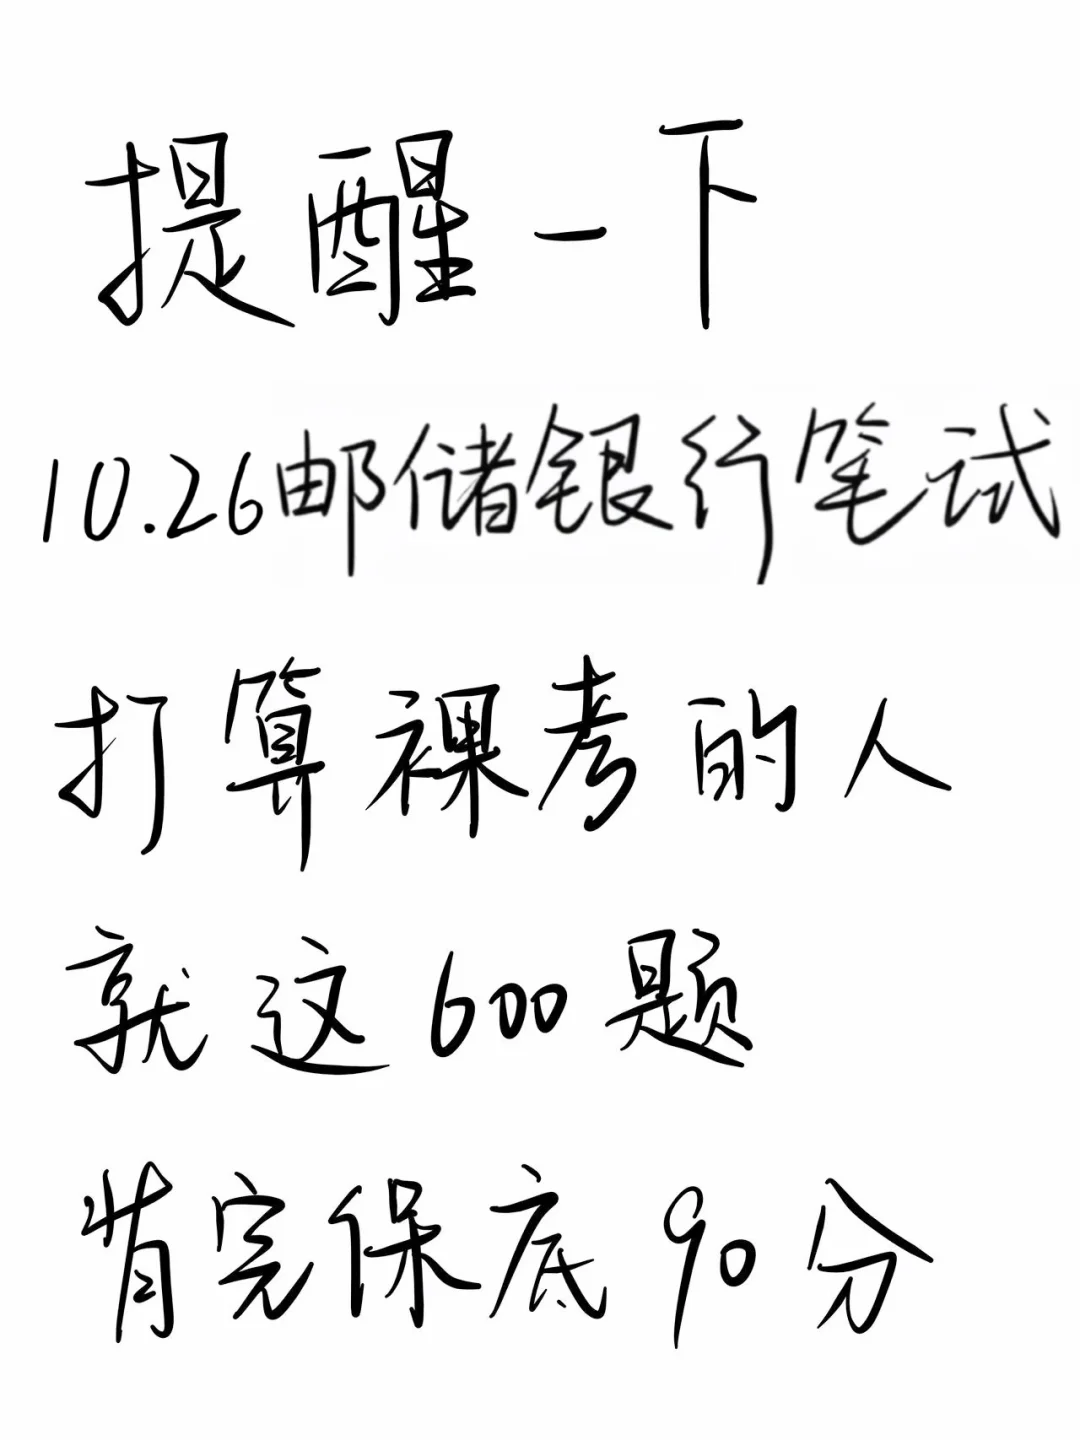 提醒一下
10.26邮储银行笔试
打算裸考的人
就这600题
背完保底90分